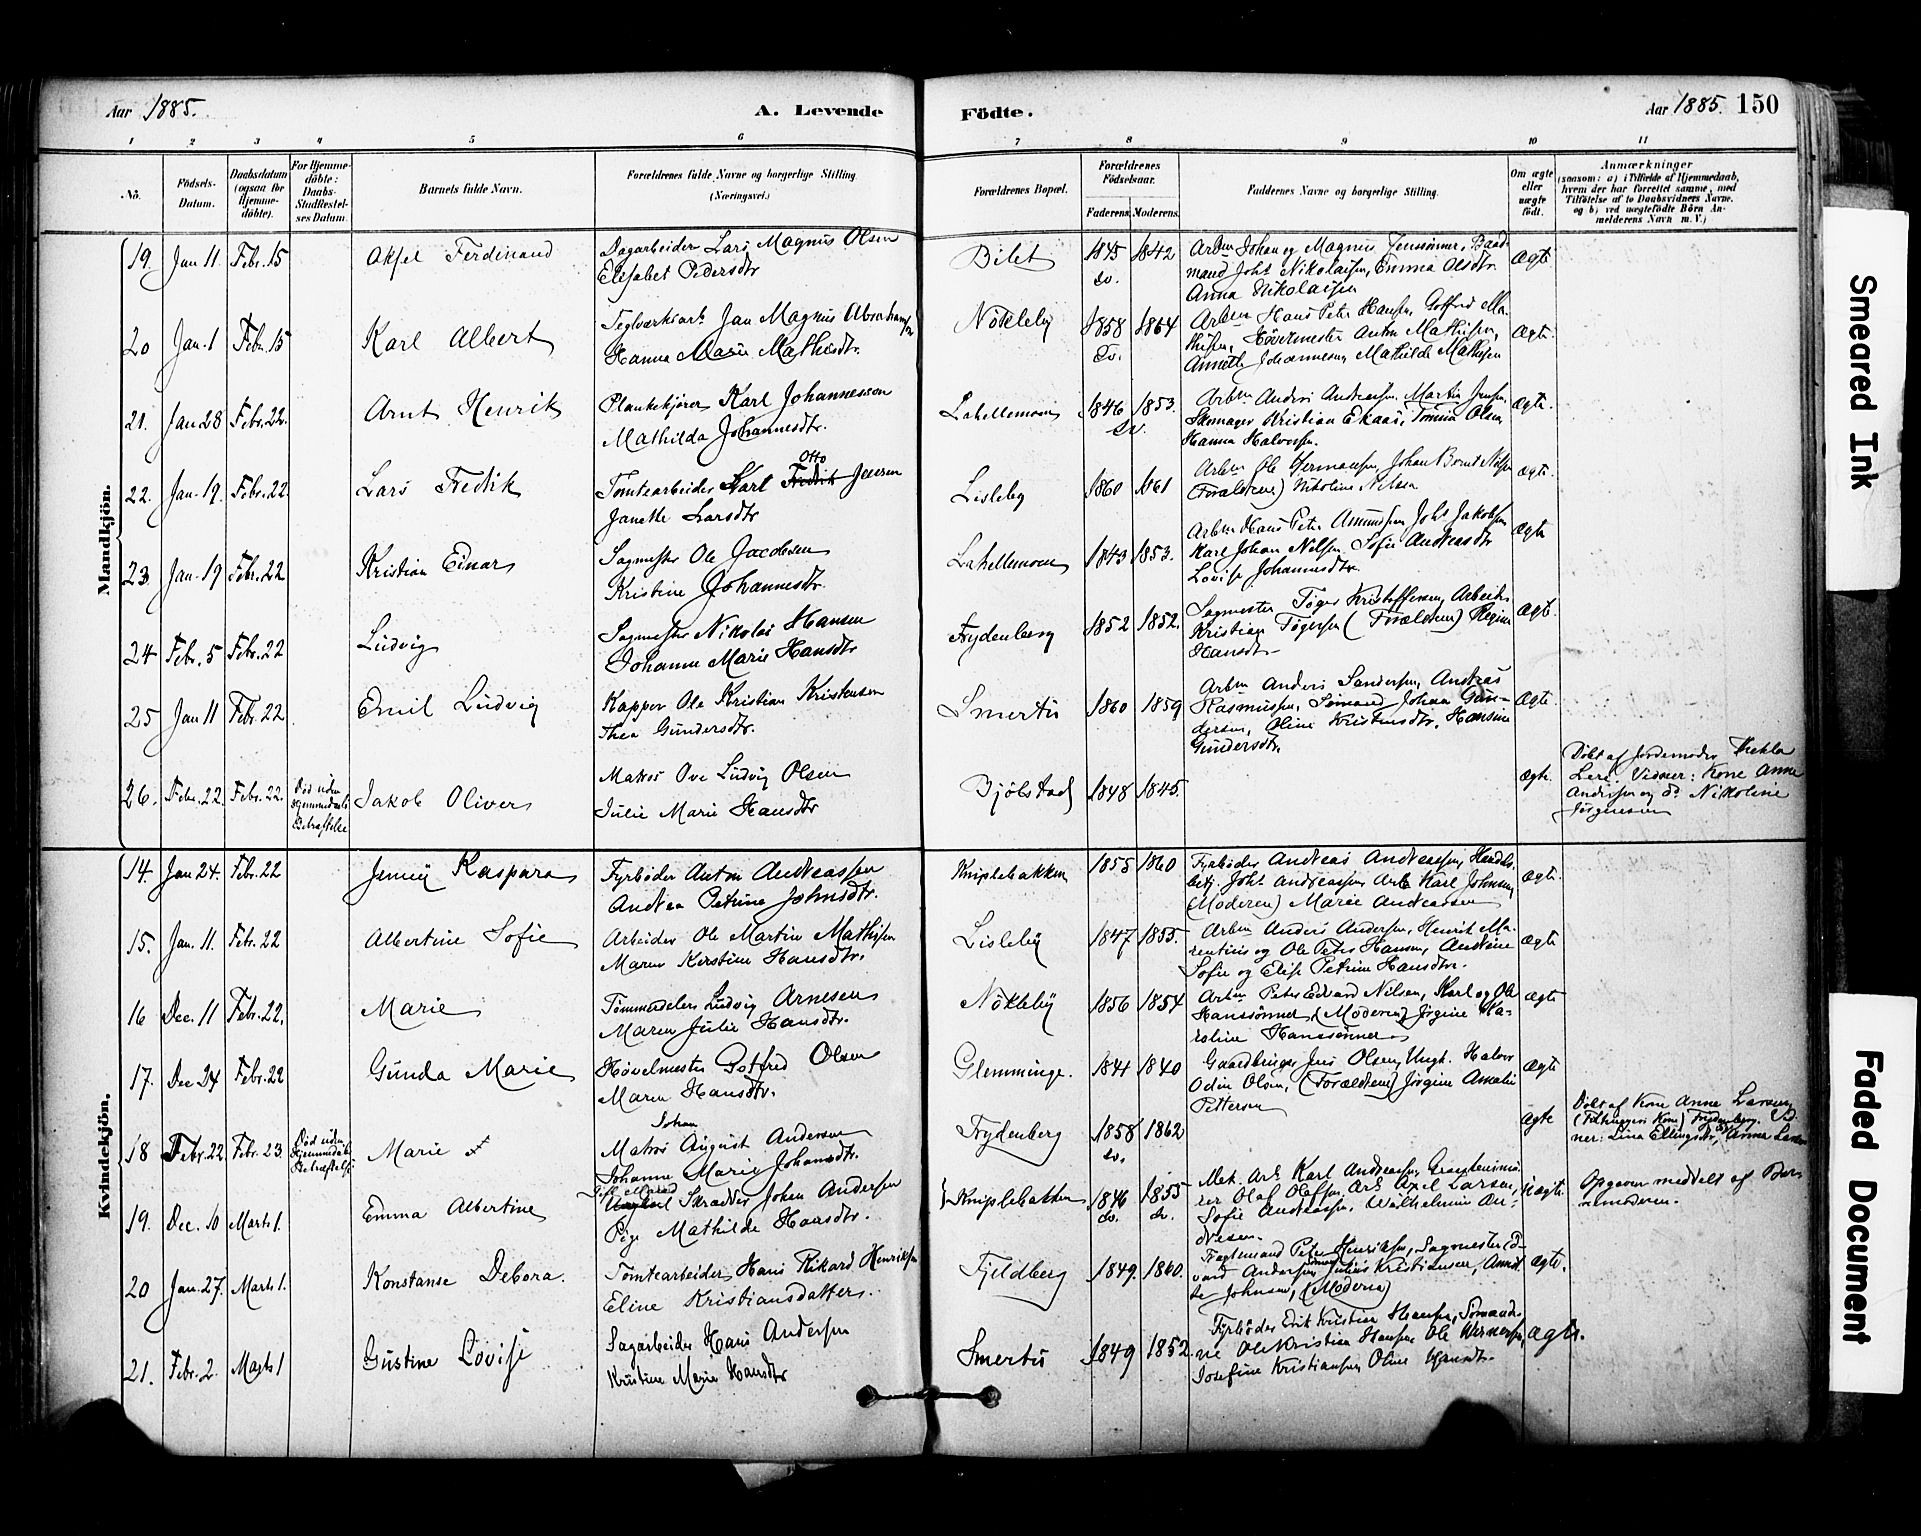 Aar 1885.
A. Levende
Födte.
Aar 1885. 150
1 2 3 4 5 6 7 8 9 10 11
Nö.
Födsels-Datum.
Daabsdatum (ogsaa for Hjemme-döbte).
For Hjemme-döbte: Daabs-Stadfestel-ses Datum.
Barnets fulde Navn.
Forældrenes fulde Navne og borgerlige Stilling. (Næringsvei.)
Forældrenes Bopæl.
Forældrenes Födselsaar.
Faderens. Moderens.
Faddernes Navne og borgerlige Stilling.
Om ægte eller uægte födt.
Anmærkninger
(saasom: a) i Tilfælde af Hjemmedaab,
hvem der har forrettet samme, med
Tilföielse af to Daabsvidners Navne.
og b) ved uægtefödte Börn An-
melderens Navn m. V.)
Mandkjön.
19. Jan 11. Febr. 15 Aksel Ferdinand
Dagarbeider Lars Magnus Olsen
Elisabet Pedersdtr
Bilet 1845 1842 do.
Arbm Johan og Magnus Jenssönner, Baad-
mand Johs Nikolaisen, Emma Olsdtr
Anna Nikolaisen
Ægte
20 Jan. 1 Febr. 15 Karl Albert
Teglværksarb. Jan Magnus Abrahamsen
Hanna Marie Mathisdtr.
Nökleby 1858 1864 Sv.
Arbm Hans Peter Hansen, Gotfred Ma-
thisen, Hövlmester Anton Mathisen,
Annette Johannesen, Mathilde Mathisen
Ægte.
21. Jan 28 Febr. 22. Arnt Henrik
Plankekjörer Karl Johannesson
Mathilda Johannesdtr.
Lahellemoen 1846 1853. Sv.
Arbm Anders Andreassen, Martin Jensen,
Skomager Kristian Ekaas, Tomine Olsen
Hanna Halvorsen.
Ægte.
22. Jan. 19. Febr. 22. Lars Fredrik
Otto
Tomtearbeider Karl Fredrik Jensen
Janette Larsdtr
Lisleby 1860 1861
Arbm Ole Hermansen, Johan Bernt Nilsen
(Forældrene) Nikoline Nilsen
Ægte.
23. Jan. 19 Febr. 22 Kristian Einar
Sagmester Ole Jacobsen
Kristine Johannesdtr.
Lahellemoen 1843 1853.
Arbm Hans Peter Amundsen Johs Jakobsen
Karl Johan Nelsen, Sofie Andreasdtr
Lovise Johannesdtr.
Ægte
24 Febr. 5 Febr. 22 Ludvig
Sagmester Nikolai Hansen
Johanne Marie Hansdtr
Frydenberg 1852 1852.
Sagmester Töger Kristoffersen, Arbeider
Kristian Tögersen (Forældrene) Regine
Hansdtr
Ægte.
25 Jan 11 Febr. 22 Emil Ludvig
Kapper Ole Kristian Kristensen
Thea Gundersdtr.
Smertu 1860 1859
Arbm Anders Sandersen, Andreas
Rasmussen, Sömand Johan Gun-
dersen, Oline Kristensdtr, Hansine
Gundersdtr.
Ægte.
26. Febr. 22 Febr. 22.
Död uden
Hjemmedaabs
Bekræftelse
Jakob Oliver
Matros Ove Ludvig Olsen
Julie Marie Hansdtr
Bjölstad 1848 1845
ægte.
Döbt af Jordemoder Thekla
Lere. Vidner: Kone Anne
Andersen og do Nikoline
Jörgensen
Kvindekjön.
14. Jan 24. Febr. 22 Jenny Kaspara
Fyrböder Anton Andreassen
Andrea Petrine Johnsdtr.
Kniplebakken 1855 1860
Fyrböder Andreas Andreassen, Handels-
betj. Johs Andreassen Arb. Karl Johnsen
(Moderen) Marie Andreassen
Ægte.
15. Jan. 11. Febr. 22 Albertine Sofie
Arbeider Ole Martin Mathisen
Maren Kerstine Hansdtr.
Lisleby 1847 1855.
Arbm Anders Andersen, Henrik Ma-
rentinius og Ole Peter Hansen, Andrine
Sofie og Elise Petrine Hansdtr.
Ægte
16 Dec. 11 Febr. 22. Marie
Tömmerdeler Ludvig Arnesen
Maren Julie Hansdtr.
Nökleby 1856 1854
Arbm Peter Edvard Nilsen, Karl og Ole
Hanssönner (Moderen) Jörgine Ka-
roline Hanssönner
Ægte
17. Dec 24 Febr. 22 Gunda Marie
Hövelmester Gotfred Olsen
Maren Hansdtr.
Glemminge. 1841 1840
Gaardbruger Jens Olsen, Ungk. Halvor
Odin Olsen, (Forældrene) Jörgine Amalie
Pettersen
Ægte
18 Febr. 22 Febr. 23
Död uden
Hjemmedaabs
Bekræftelse
Marie
Johan
Matros August Andersen
Johanne Marie Johansdtr.
Frydenberg 1858 1862 do.
ægte
Döbt af Kone Anne Larsen
Kone) Frydenberg. Vid-
ner: Lina Ellingsdtr, Anna Larsen
19. Dec. 10 Marts 1. Emma Albertine
Gift Mand
Ungkarl Skrædder Johan Andersen
Pige Mathilde Hansdtr.
Kniplebakken 1846 1855 do. do.
Arb. Karl Andreassen, Gravstensmu-
rer Olaf Olafsen, Arb. Axel Larsen,
Sofie Andreassen, Wilhelmine An-
dresen.
uægte
Opgaven meddelt af Bar-
nemoderen.
20 Jan. 27. Marts 1. Konstanse Debora.
Tomtearbeider Hans Rikard Henriksen
Eline Kristiansdatter.
Fjeldberg 1849. 1860.
Fragtemand Peter Henriksen, Sagmester Ed-
vard Andersen, Julius Kristiansen, Anet-
te Johnsen, (Moderen)
Ægte.
21. Febr. 2. Marts 1 Gustine Lovise
Sagarbeider Hans Andersen
Kristine Marie Hansdtr
Smertu 1849 1852.
Fyrböder Erik Kristian Hansen, Sömænde-
ne Ole Kristian Hansen Ole Wernersen,
Josefine Kristiansen, Oline Hansdtr.
Ægte.
Smeared Ink
Faded Document